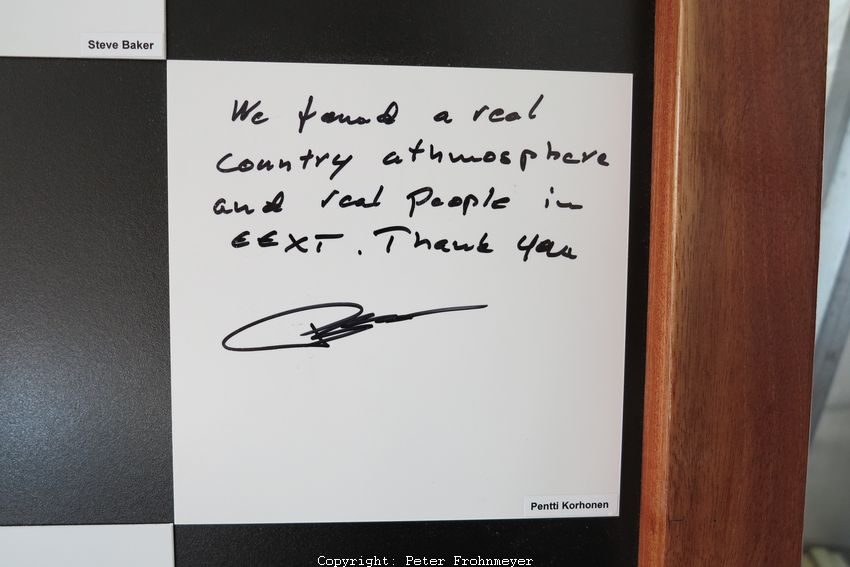 Steve Baker
We found a real
country athmosphere
and real people in
EEXT. Thank you
Pentti Korhonen
Copyright: Peter Frohnmeyer